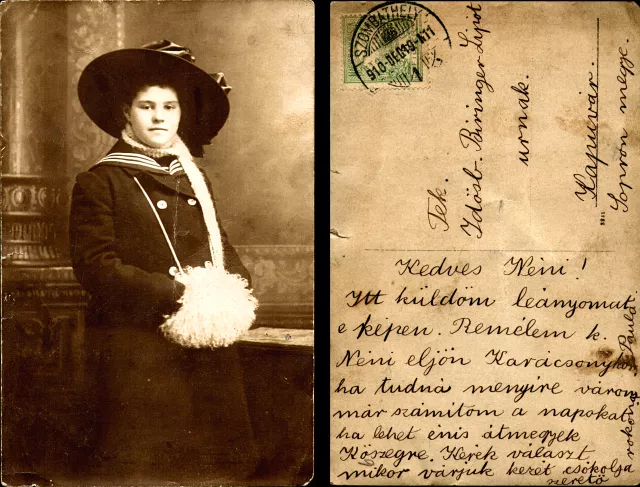 SZOMBATHELY
910 DEC 09 N11
Tek.
Idősb. Biringer Lipót
urnak.
Kapuvár.
Sopron megye.
Kedves Néni!
Itt küldöm leányomat
e képen. Remélem k.
Néni eljön Karácsonykor
ha tudná menyire várom
már számitom a napokat
ha lehet énis átmegyek
Kőszegre. Kérek választ
mikor várjuk kezét csókolja
szerető
rokona Paula.